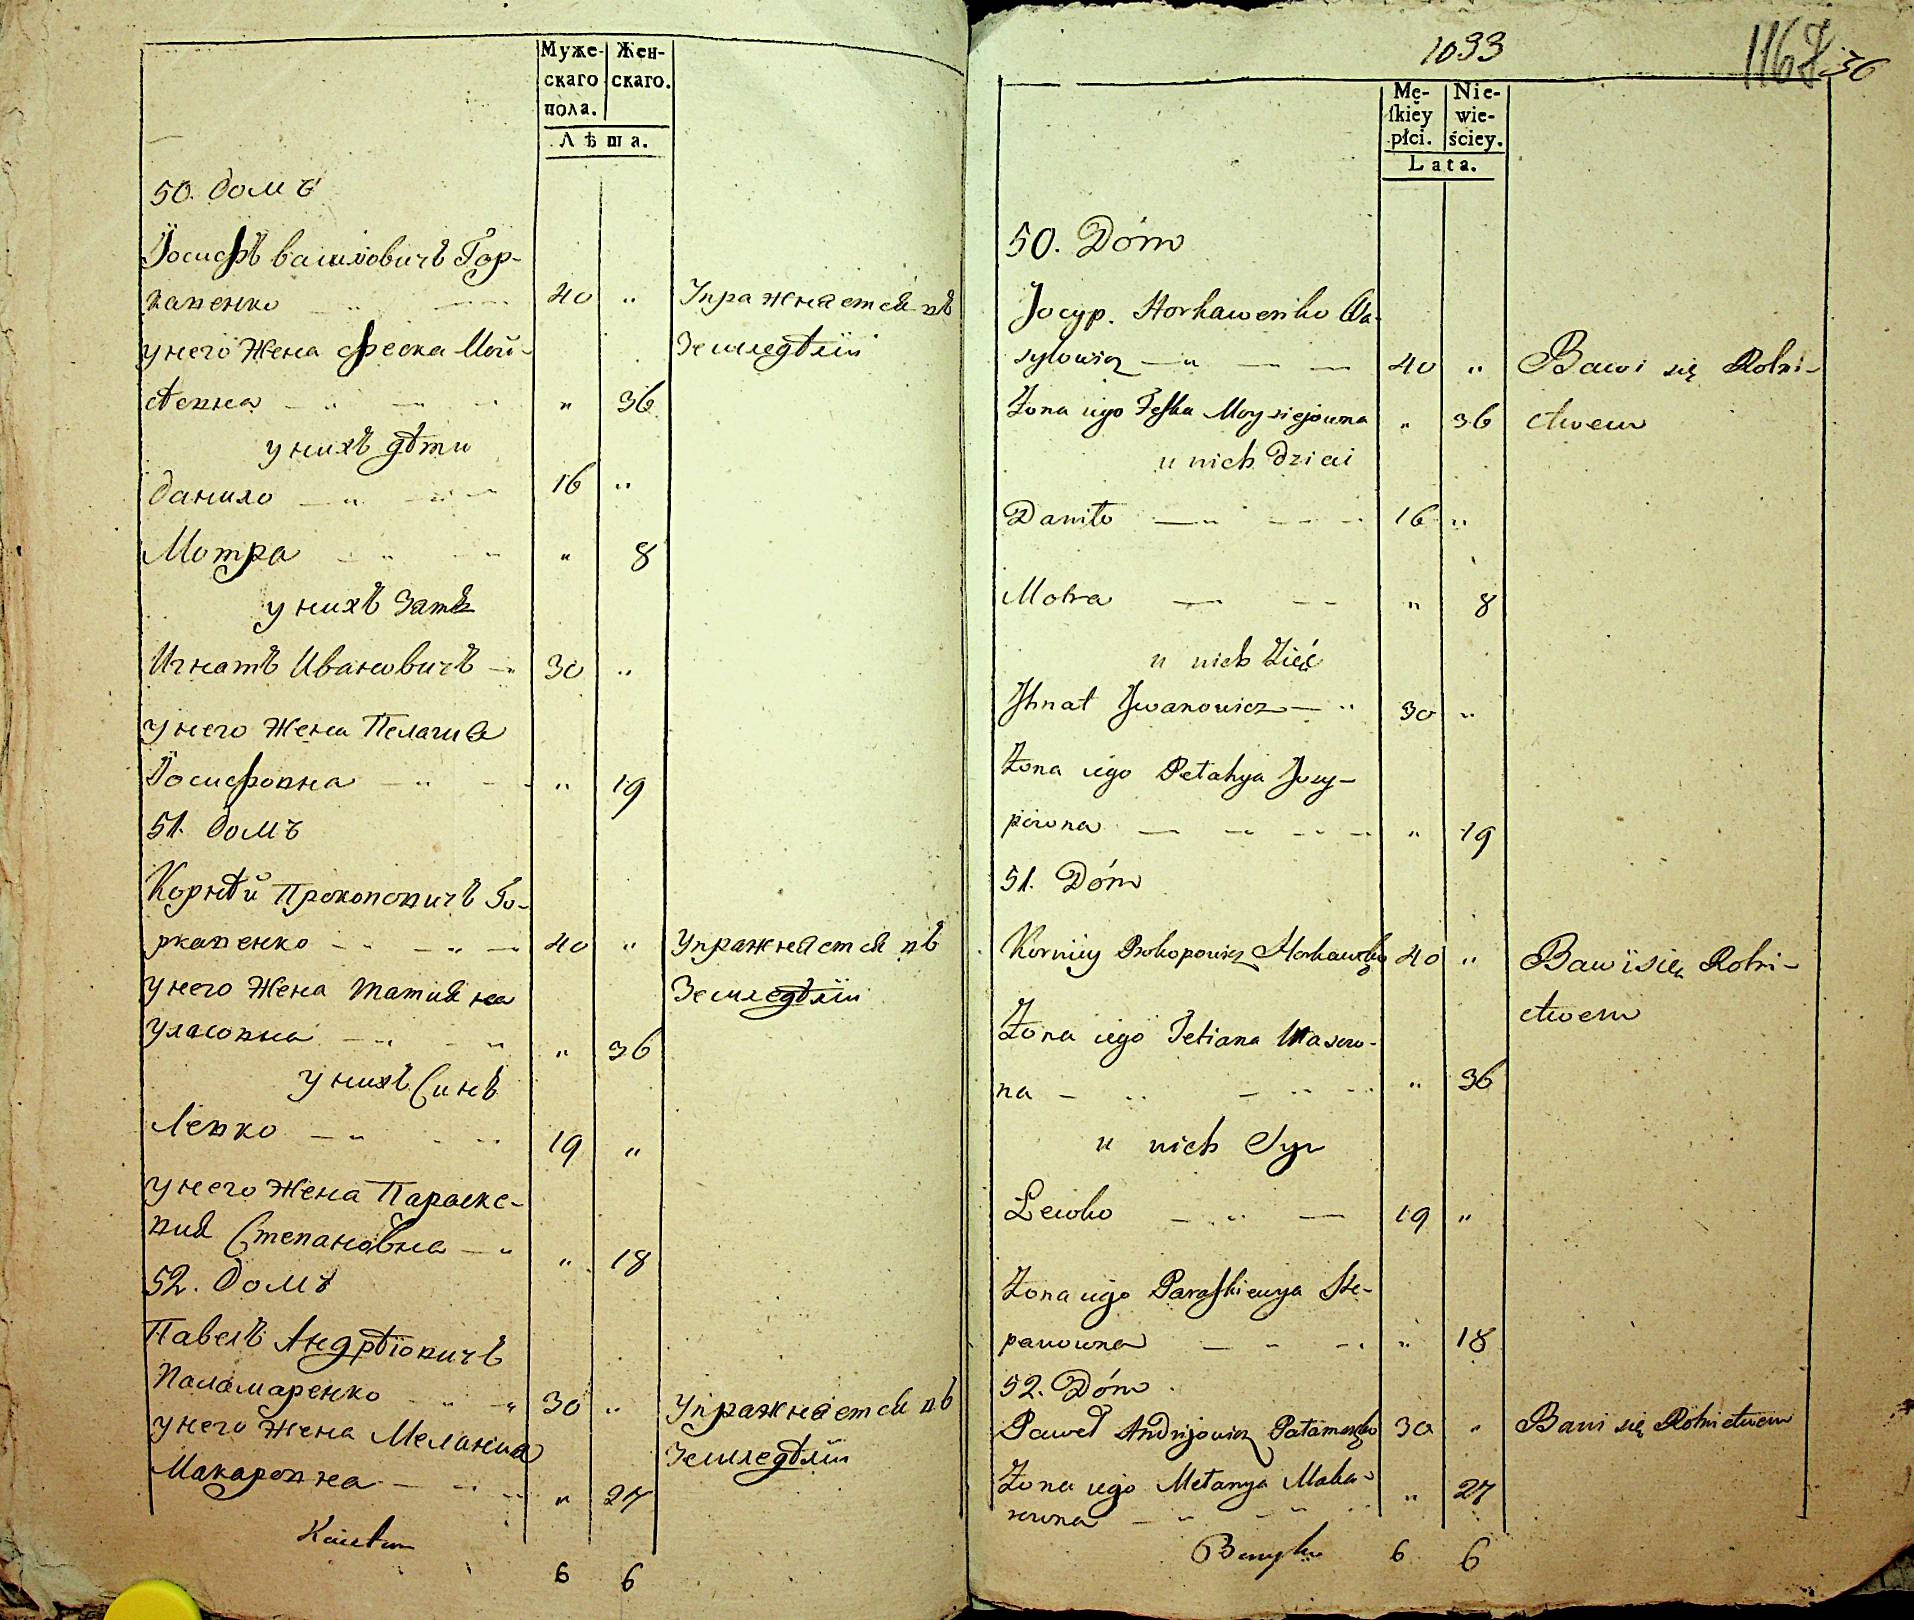 Муже- Жен-
скаго скаго.
пола.
Лѣта.
50. домъ
Іосифъ василовичъ Гор-
каненко 40 " Упражняется въ
у него Жена Феска Мой- Земледѣліи
сѣевна " 36
у нихъ дѣти
данило 16 "
Мотра " 8
у нихъ Зять
Игнатъ Ивановичъ 30 "
у него Жена Пелагия
Іосифовна " 19
51. домъ
Корнѣй Прокоповичъ Го-
ркавенко 40 " Упражняется въ
у него Жена Татияна Земледѣліи
уласовна " 36
у нихъ Синъ
Левко 19 "
у него Жена Параске-
вия Степановна " 18
52. домъ
Павелъ Андрѣіовичъ
Паламаренко 30 " Упражняется въ
у него Жена Мелания Земледѣліи
Макаровна " 27
6 6
1033 1168 36
Mę- Nie-
ſkiéy wie-
płci. ściey.
Lata.
50. Dóm
Jozyp. Horkawenko Wa-
sylowicz 40 " Bawi się Rolni-
Żona iego Feſka Moysiejowna " 36 ctwem
u nich dzieci
Daniło 16 "
Motra " 8
u nich Zięć
Jhnat Jwanowicz 30 "
Żona iego Pełahya Jozy-
powna " 19
51. Dóm
Korniiy Prokopowicz Horkawenko 40 " Bawi się Rolni-
Żona iego Tetiana Własow- ctwem
na " 36
u nich Syn
Lewko 19 "
Żona iego Paraſkiewya Ste-
panowna " 18
52. Dóm
Paweł Andrijowicz Pałamarenko 30 " Bawi się Rolnictwem
Żona iego Mełanya Maka- " 27
rowna
6 6